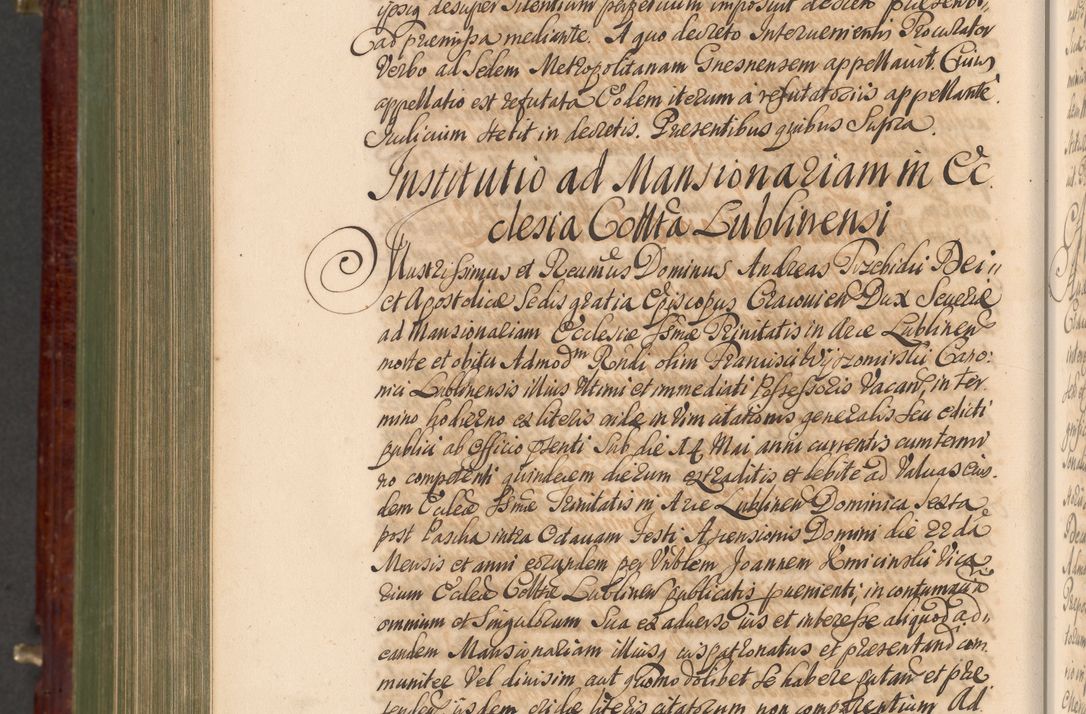 ipsis desuper silentium perpetuum imposuit
ad præmissa mediante. A quo decreto Intervenientis Procurator
Verbo ad Sedem Metropolitanam Gnesnensem appellavit. Cuius
appellatio est refutata Eodem iterum a refutatoriis appellante
Judicium stetit in decretis. Præsentibus quibus Supra.
Institutio ad Mansionariam in Ec
clesia Colltta Lublinensi
Illustrissimus et Reverendissimus Dominus Andreas Trzebicki Dei
et Apostolicæ Sedis gratia Episcopus Cracovien Dux Severiæ
ad Mansionariam Ecclesiæ Ssmæ Trinitatis in Arce Lublinen
morte et obitu Admodm Rendi olim Francisci Wyzomirski Cano:
nici Lublinensis illius Ultimi et immediati Possessoris Vacan, in ter
mino hodierno ex literis eiusdem in Vim citationis generalis seu edicti
publici ab Officio præsenti Sub die 14 Mai anni currentis cum termi
no competenti quindecem dierum extraditis et debite ad Valvas eius
dem Ecclæ Ssmæ Trinitatis in Arce Lublinen Dominica Sexta
post Pascha intra Octavam Festi Ascensionis Domini die 22 da
Mensis et anni eorundem per Vnblem Joannem Kmicinski Vica
rium Ecclæ Colltæ Lublinen publicatis provenienti, in contumacia
omnium et Singulorum Sua ex adverso ius et interesse aliquod ad
eandem Mansionariam illiusq iuspatronatus et præsentandi com
muniter Vel divisim aut quomodolibet se habere putan et præ
tenden iisdem literis citatorum non comparentium Ad